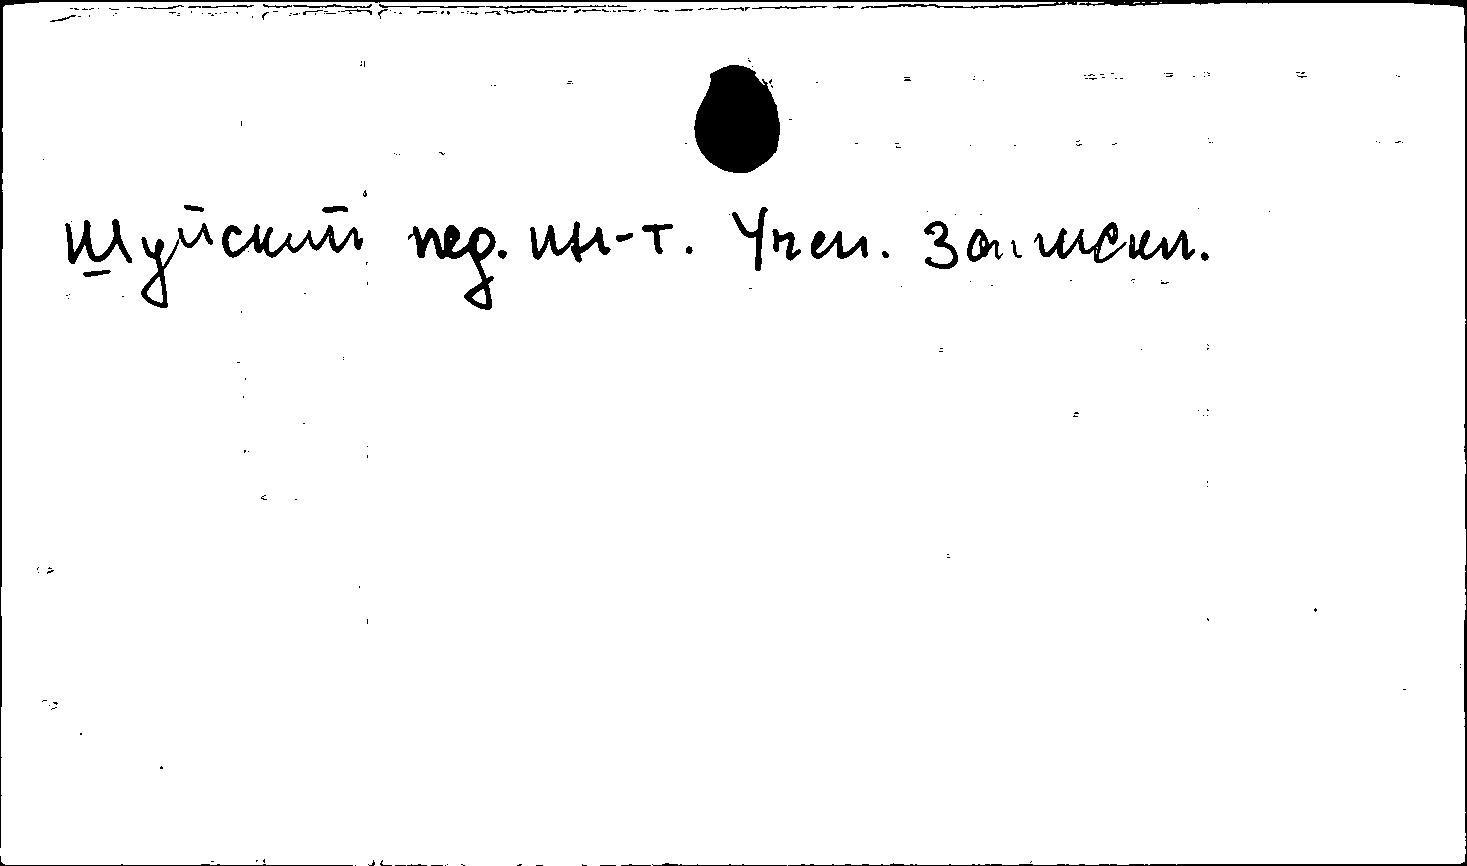 Шуйский пед. ин-т. Учен. Записки.